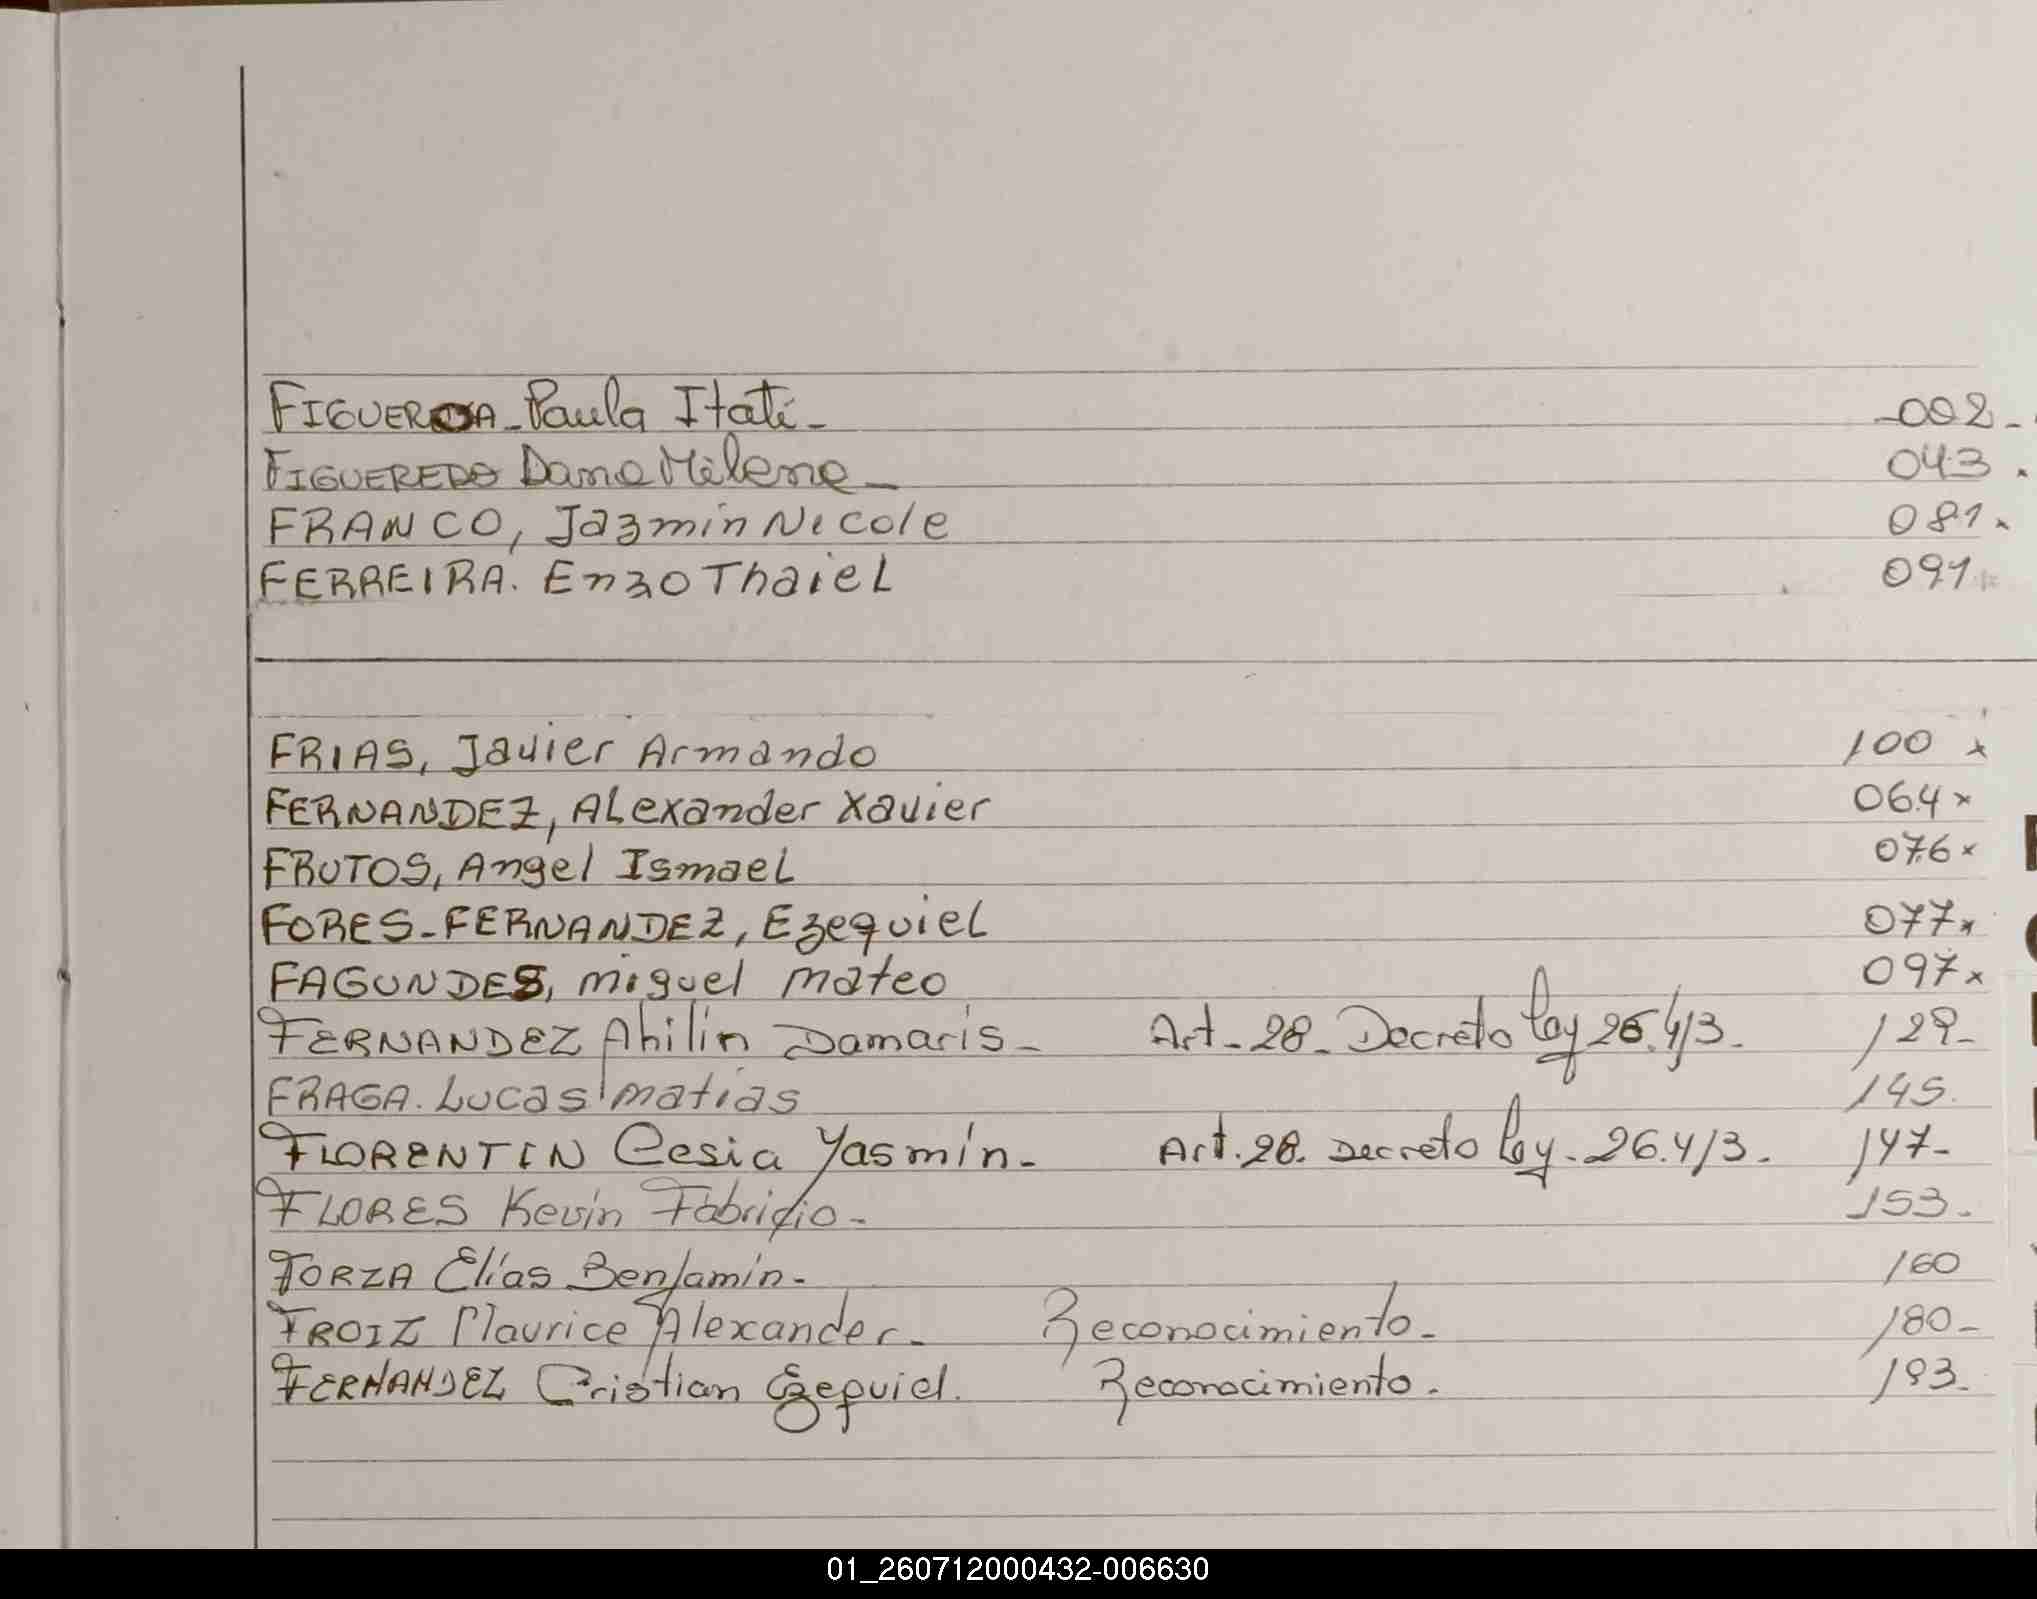 FIGUEROA - Paula Itatí - -002-
FIGUEREDO Dana Milena - 043.
FRANCO, Jazmín Nicole 081.
FERREIRA. Enzo Thaiel 091
FRIAS, Javier Armando 100 x
FERNANDEZ, Alexander Xavier 064 x
FRUTOS, Angel Ismael 076 x
FORES-FERNANDEZ, Ezequiel 077 x
FAGUNDES, Miguel Mateo 097 x
FERNANDEZ Ahilin Damaris - Art - 28 - Decreto ley 26.413. 129-
FRAGA. Lucas Matias 145.
FLORENTIN Cesia Yasmín - Art. 28. Decreto ley - 26.413. 147-
FLORES Kevin Fabricio - 153.
FORZA Elías Benjamín - 160
FROIZ Maurice Alexander - Reconocimiento - 180-
FERNANDEZ Cristian Ezequiel. Reconocimiento. 193.
01_260712000432-006630